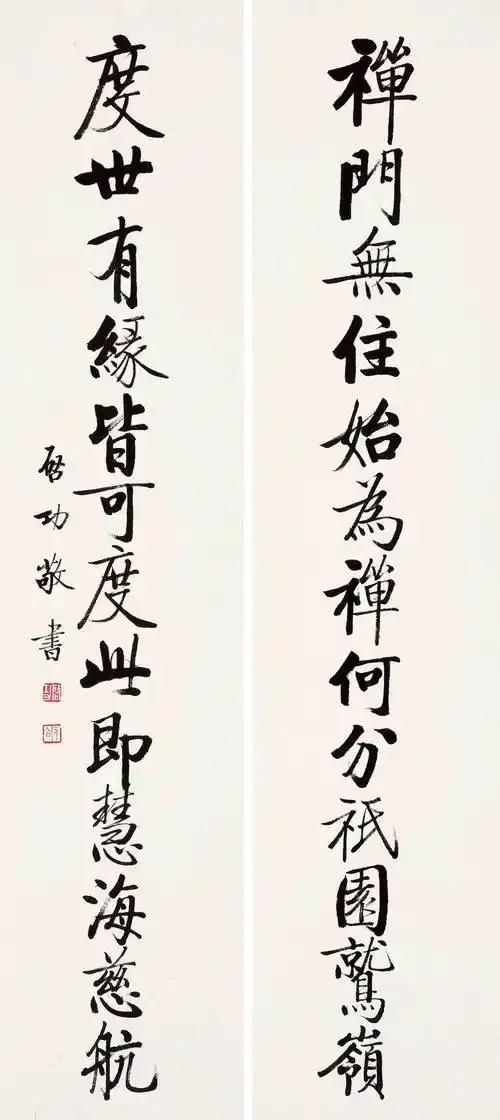 禪門無住始為禪何分祇園鷲嶺
度世有緣皆可度此即慧海慈航
啟功敬書